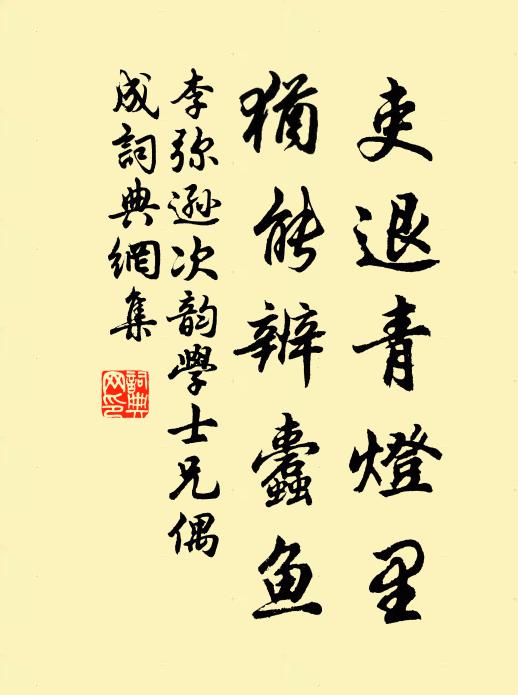 吏退青燈里
猶能辨蠹魚
李弥遜次韵學士兄偶
成詞典網集
詞典
网印